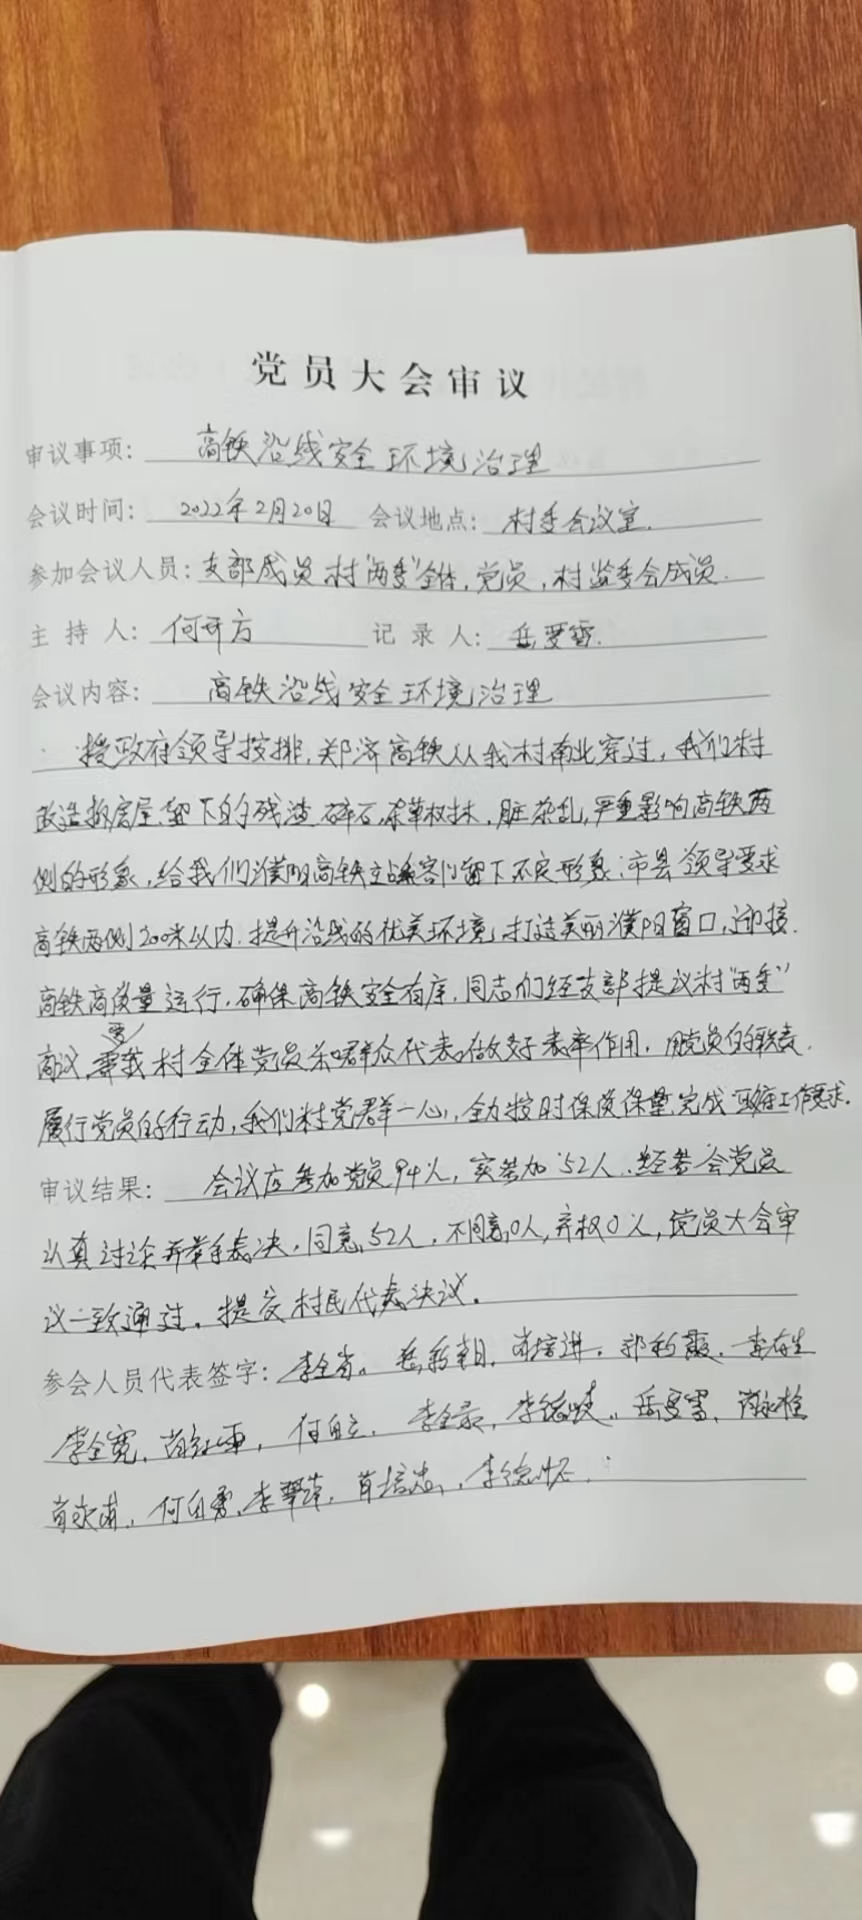 党员大会审议
审议事项: 高铁沿线安全环境治理
会议时间: 2022年2月20日 会议地点: 村委会议室.
参加会议人员: 支部成员 村"两委"全体, 党员, 村监委会成员.
主持人: 何开方 记录人: 岳
会议内容: 高铁沿线安全环境治理
政府领导按排, 郑济高铁从我村南北穿过, 我们村
改造拆房屋, 留下的残渣碎石, 杂草树木, 脏杂乱, 严重影响高铁两
侧的形象, 给我们濮阳高铁站乘客们留下不良形象; 市县领导要求
高铁两侧200米以内. 提升沿线的优美环境, 打造美丽濮阳窗口, 迎接.
高铁高质量运行, 确保高铁安全有序, 同志们经支部提议村"两委"
商议, 要我村全体党员和群众代表, 做好表率作用, 用党员的职责.
履行党员的行动, 我们村党群一心, 全力按时保质保量完成 工作要求.
审议结果: 会议应参加党员94人, 实参加52人. 经参会党员
认真讨论并举手表决, 同意, 52人, 不同意0人, 弃权0人, 党员大会审
议一致通过. 提交村民代表决议.
参会人员代表签字: 李全 肖培进. 李存生
李全宽, 何自立. 李全 肖永栓
何自勇, 肖培忠, 李德怀.